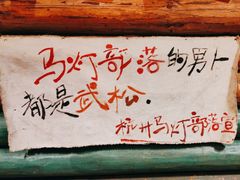 马灯部落的男卜
都是武松.
杭州马灯部落宣